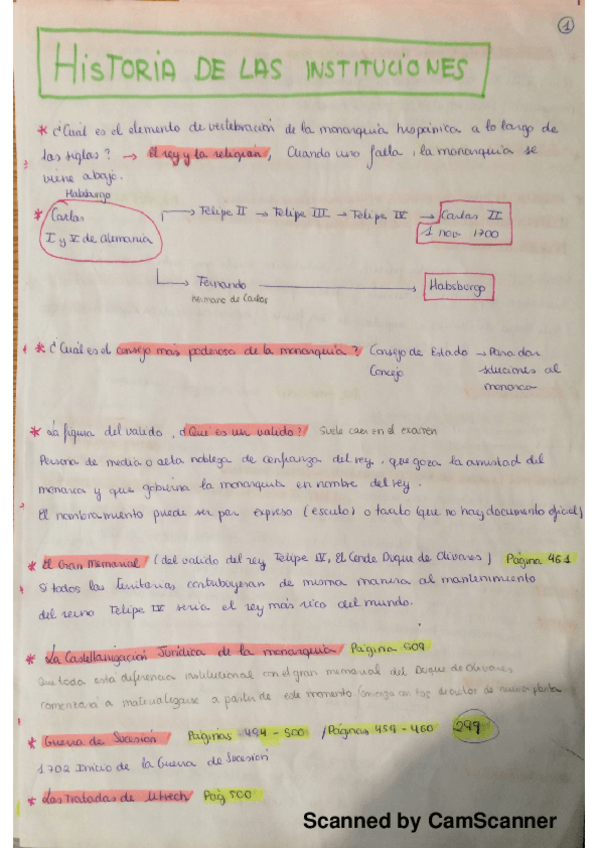 1
HISTORIA DE LAS INSTITUCIONES
* ¿Cuál es el elemento de vertebración de la monarquía hispánica a lo largo de
los siglos? → El rey y la religión, Cuando uno falla, la monarquía se
viene abajo.
Habsburgo
* Carlos → Felipe II → Felipe III → Felipe IV → Carlos II
I y V de Alemania 1 nov 1700
→ Fernando → Habsburgo
hermano de Carlos
* ¿Cuál es el consejo más poderoso de la monarquía? Consejo de Estado → Para dar
Concejo soluciones al
monarca
* La figura del valido, ¿Qué es un valido? Suele caer en el examen
Persona de media o alta nobleza de confianza del rey, que goza la amistad del
monarca y que gobierna la monarquía en nombre del rey.
El nombramiento puede ser por expreso (escrito) o tácito (que no hay documento oficial)
* El Gran Memorial (del valido del rey Felipe IV, El Conde Duque de Olivares) Página 461
Si todos los territorios contribuyesan de misma manera al mantenimiento
del reino Felipe IV sería el rey más rico del mundo.
* La Castellanización Jurídica de la monarquía Página 509
Que toda esta diferencia institucional con el gran memorial del Duque de Olivares
comenzará a materializarse a partir de este momento Comienza con los decretos de nueva planta
* Guerra de Sucesión Páginas 494 - 500 / Páginas 459 - 460 299
1702 Inicio de la Guerra de Sucesión
* Los Tratados de Utrech Pág 500
Scanned by CamScanner